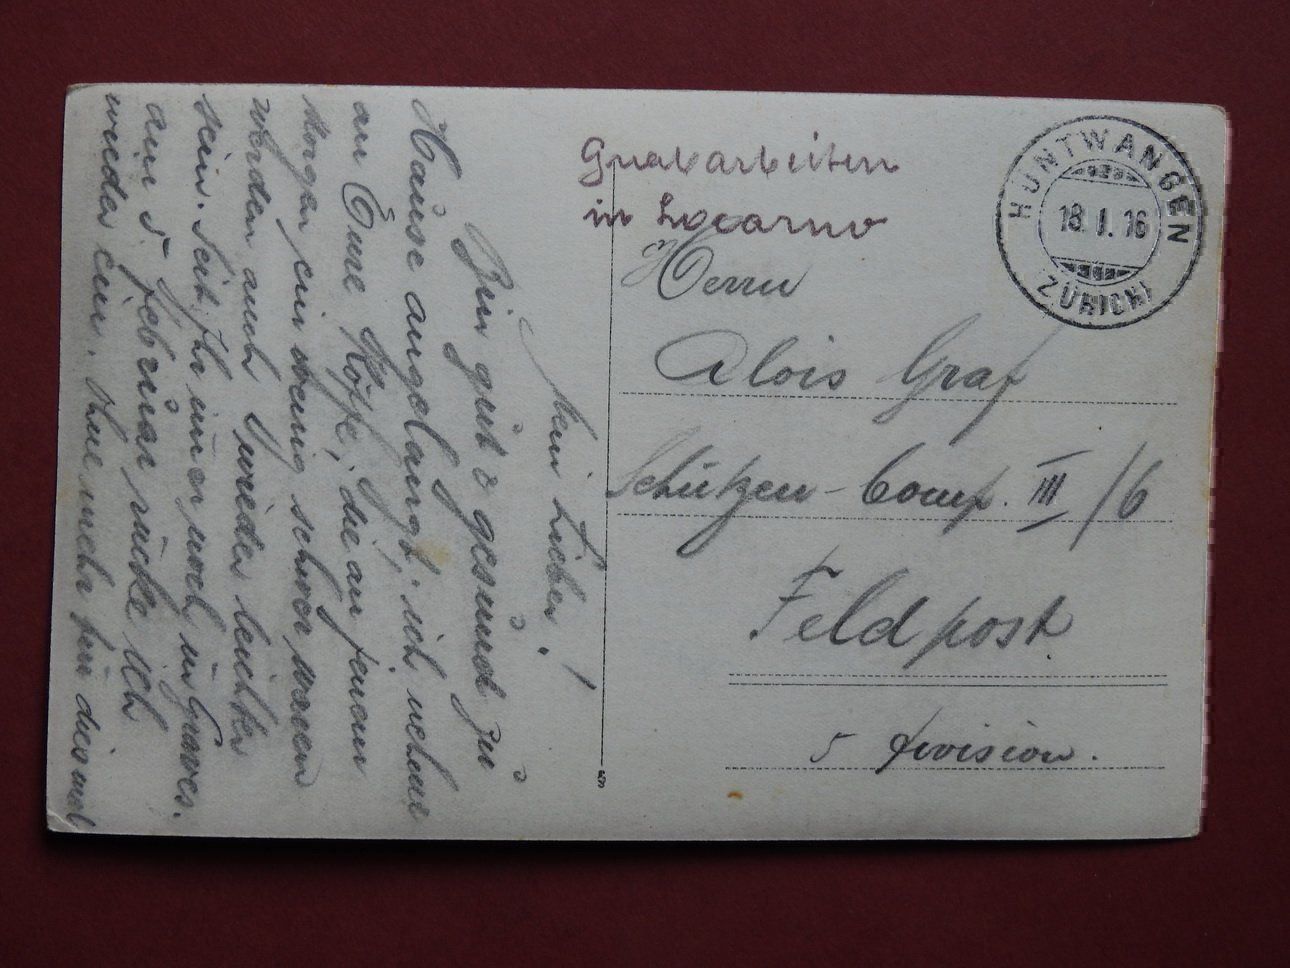 Grabarbeiten
in Locarno
HÜNTWANGEN
18.I.16
(ZÜRICH)
Herrn
Alois Graf
Schützen-Comp. III/6
Feldpost.
5 Division.
Mein Lieber!
Bin gut & gesund zu
Hause angelangt; ich nehme
an Eure Köpfe, die an jenem
Morgen ein wenig schwer waren
werden auch wieder leichter
sein. Seit Ihr immer noch in
am 5. Februar rücke ich
wieder ein. diesmal